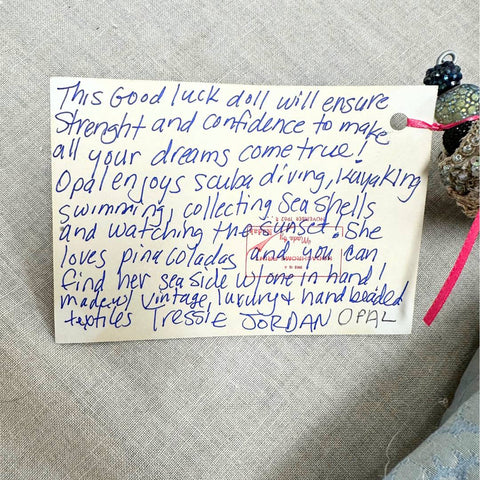 This Good luck doll will ensure
Strenght and confidence to make
all your dreams come true!
Opal enjoys scuba diving, Kayaking
swimming, collecting Sea Shells
and watching the Sunset. She
loves pina coladas and you can
find her sea side w/one in hand!
made w/ vintage, luxury & hand beaded
textiles Tressie JORDAN OPAL
Made by
NOVEMBER 1962